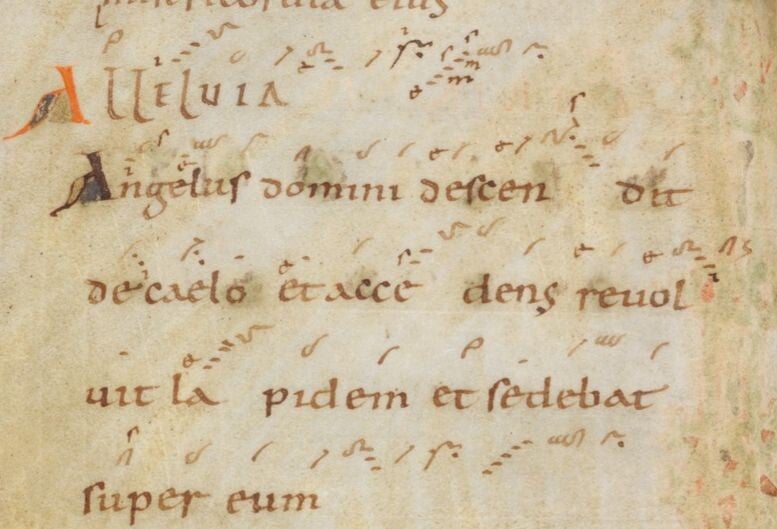 misericordia eius
ALLELUIA
Angelus domini descen dit
de caelo et acce dens revol
vit la pidem et sedebat
super eum